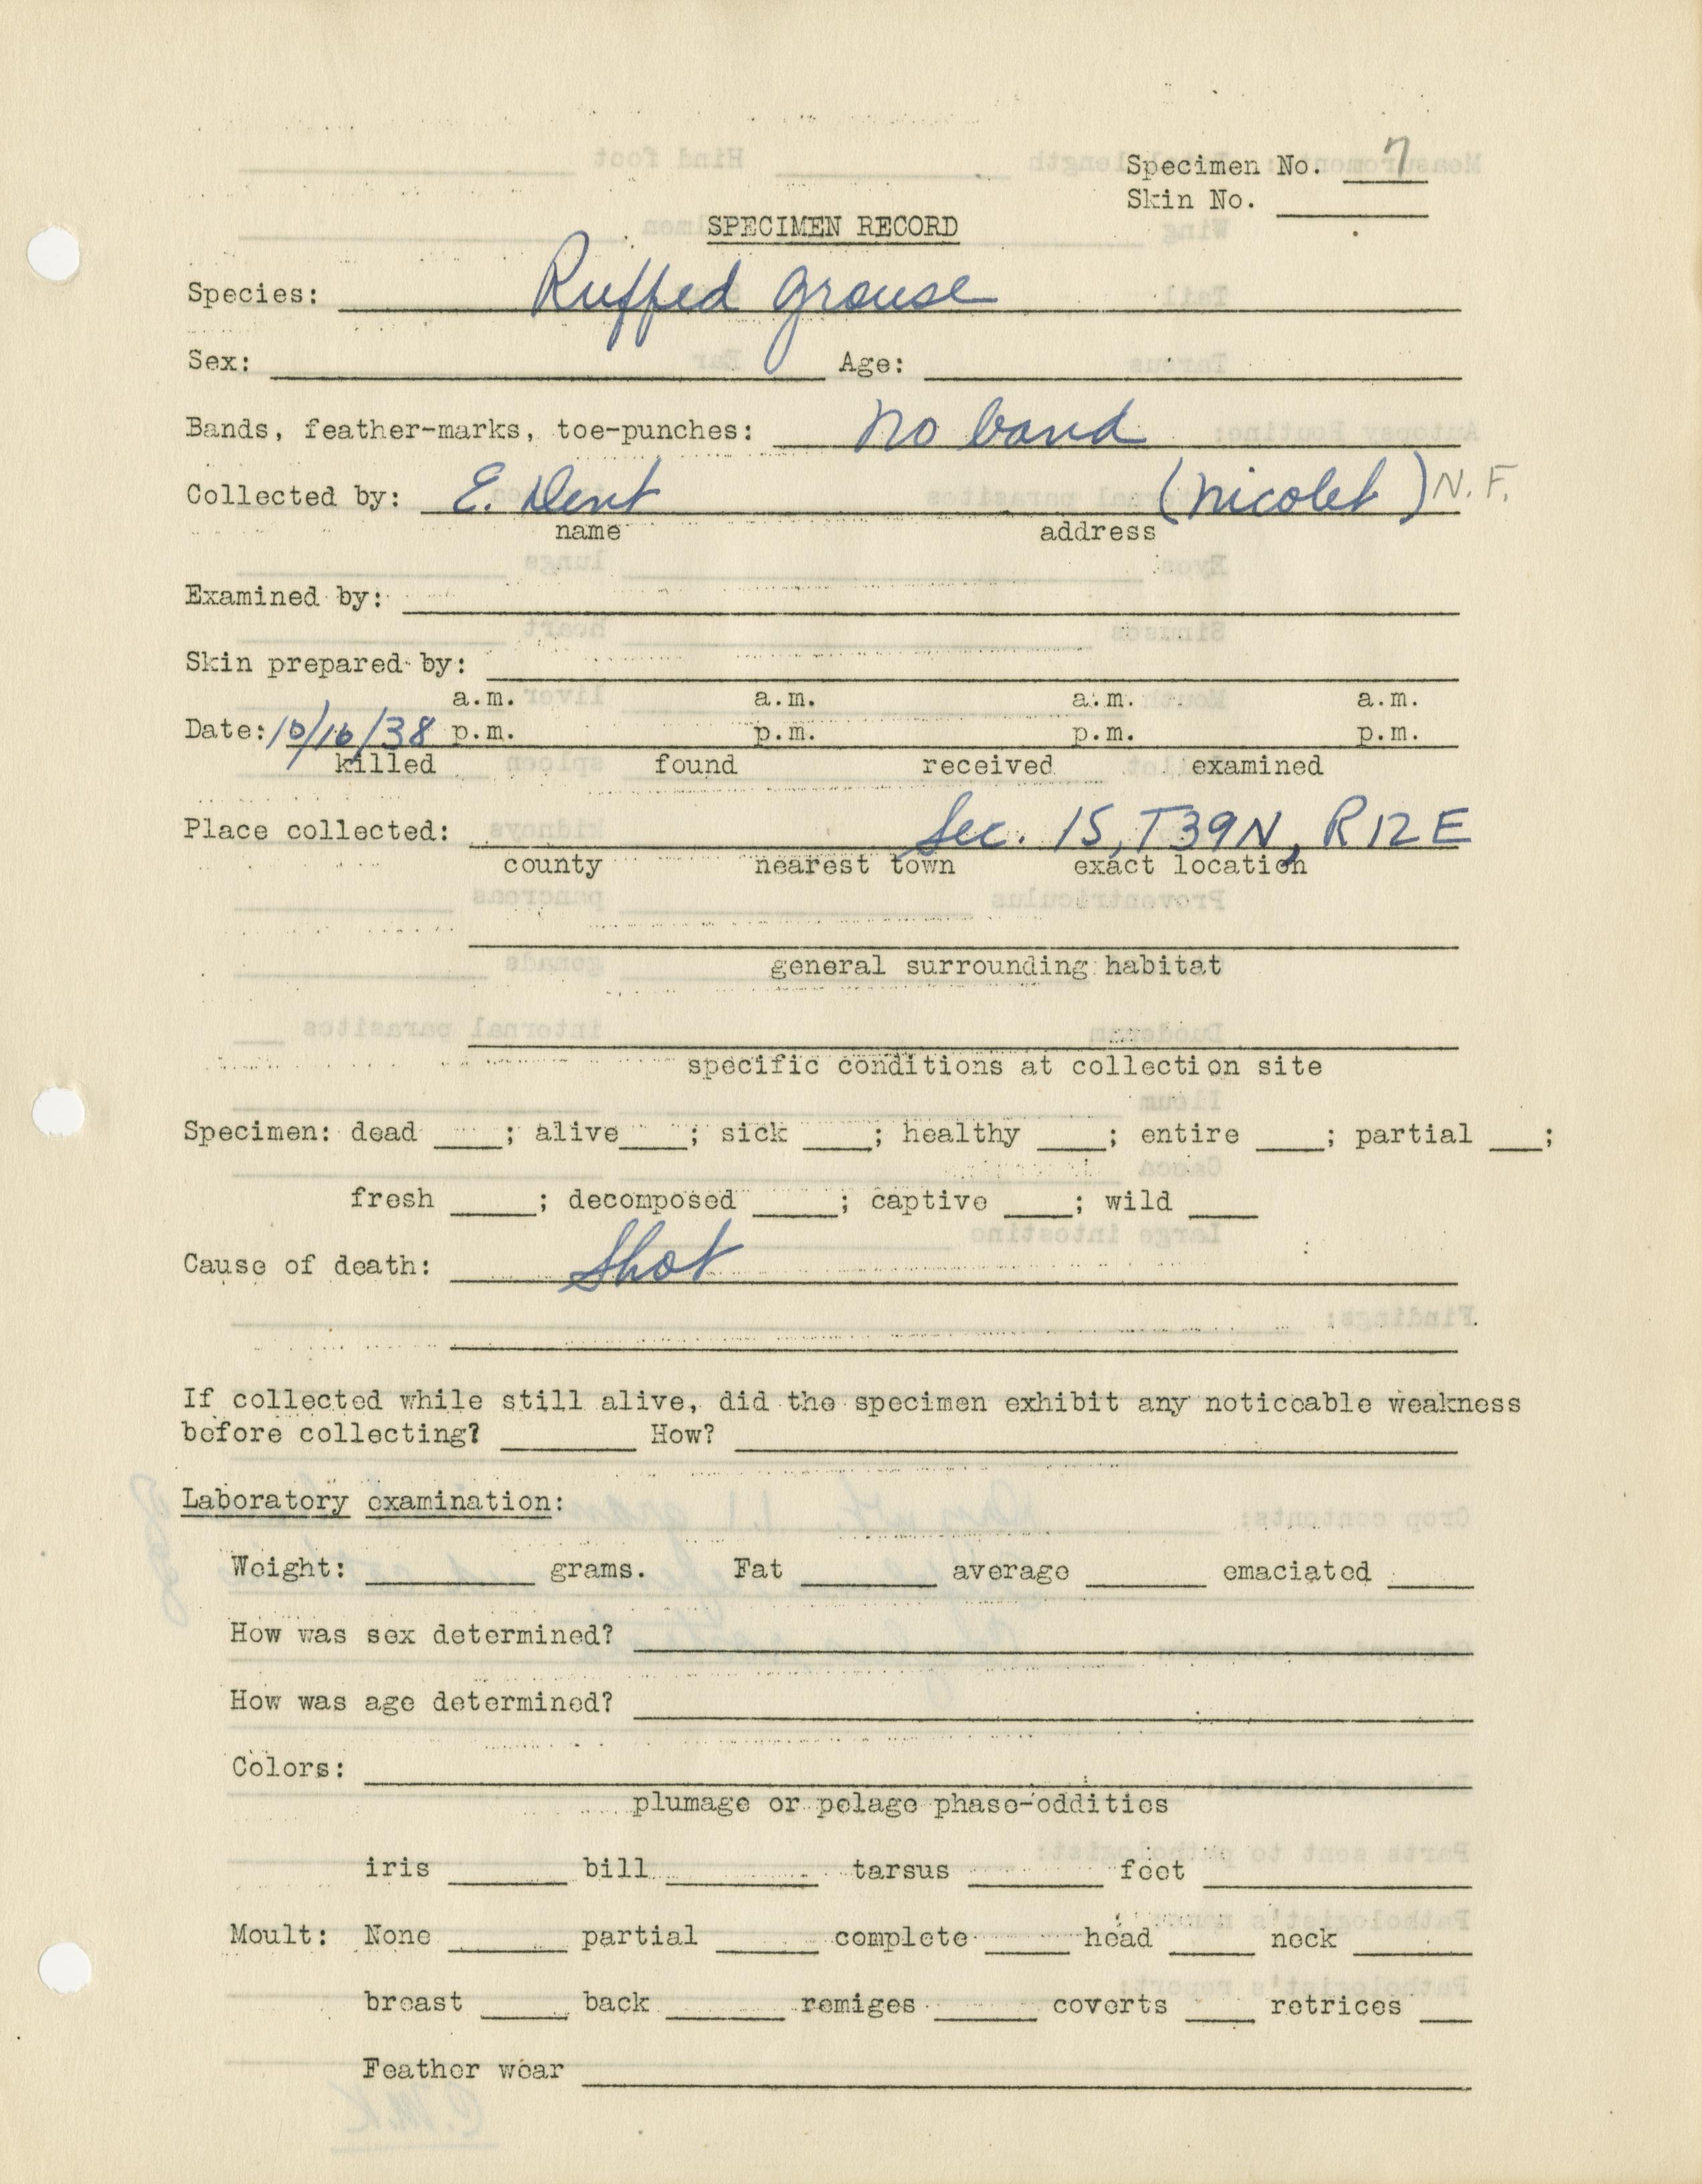 Specimen No. 7
Skin No. ____
SPECIMEN RECORD
Species: Ruffed grouse
Sex: ____ Age: ____
Bands, feather-marks, toe-punches: no band
Collected by: E. Dent (Nicolet) N.F.
name address
Examined by: ____
Skin prepared by: ____
a.m. a.m. a.m. a.m.
Date: 10/16/38 p.m. p.m. p.m. p.m.
killed found received examined
Place collected: Sec. 15, T39N, R12E
county nearest town exact location
general surrounding habitat
specific conditions at collection site
Specimen: dead ____; alive ____; sick ____; healthy ____; entire ____; partial ___;
fresh ____; decomposed ____; captive ____; wild ____
Cause of death: Shot
If collected while still alive, did the specimen exhibit any noticeable weakness
before collecting? ____ How? ____
Laboratory examination:
Weight: ____ grams. Fat ____ average ____ emaciated ____
How was sex determined? ____
How was age determined? ____
Colors: ____
plumage or pelage phase-oddities
iris ____ bill ____ tarsus ____ foot ____
Moult: None ____ partial ____ complete ____ head ____ neck ____
breast ____ back ____ remiges ____ coverts ____ retrices ____
Feather wear ____